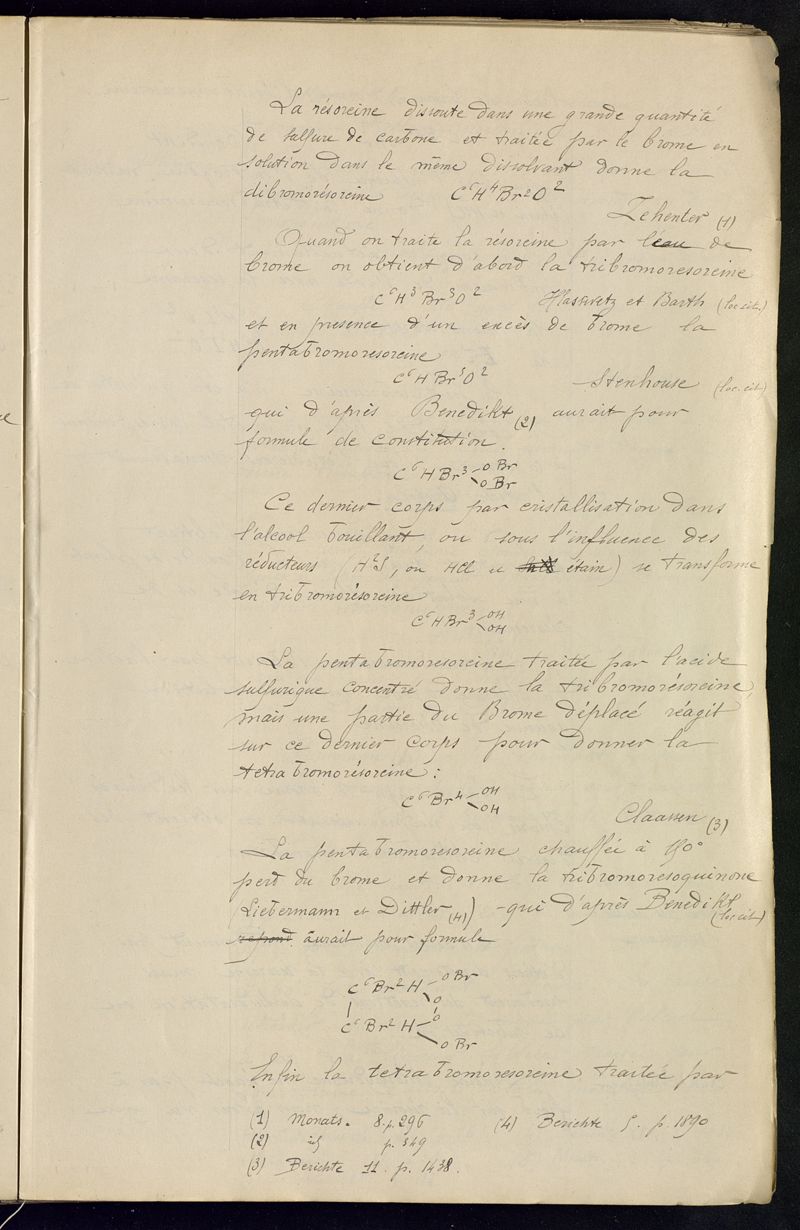 La résorcine dissoute dans une grande quantité
de sulfure de carbone et traitée par le brome en
solution dans le même dissolvant donne la
dibromorésorcine C⁶H⁴Br²O²
Zehenter (1)
Quand on traite la résorcine par l'eau de
brome on obtient d'abord la tribromoresorcine
C⁶H³Br³O² Hlasiwetz et Barth (loc. cit.)
et en presence d'un excès de brome la
pentabromoresorcine
C⁶HBr⁵O² Stenhouse (loc. cit)
qui d'après Benedikt (2) aurait pour
formule de constitution.
C⁶HBr³ OBr
OBr
Ce dernier corps par cristallisation dans
l'alcool bouillant, ou sous l'influence des
réducteurs (H²S, ou HCl et étain) se transforme
en tribromorésorcine
C⁶HBr³ OH
OH
La pentabromoresorcine traitée par l'acide
sulfurique concentré donne la tribromorésorcine,
mais une partie du Brome déplacé réagit
sur ce dernier corps pour donner la
tetrabromorésorcine :
C⁶Br⁴ OH
OH
Claassen (3)
La pentabromoresorcine chauffée à 190°
perd du brome et donne la tribromoresoquinone
(Liebermann et Dittler (4)) qui d'après Benedikt
(loc cit)
repond aurait pour formule
C⁶Br²H OBr
O
C⁶Br²H O
OBr
Enfin la tetrabromoresorcine traitée par
(1) Monats. 8. p. 296 (4) Berichte 5. p. 1890
(2) id p. 349
(3) Berichte 11. p. 1438.